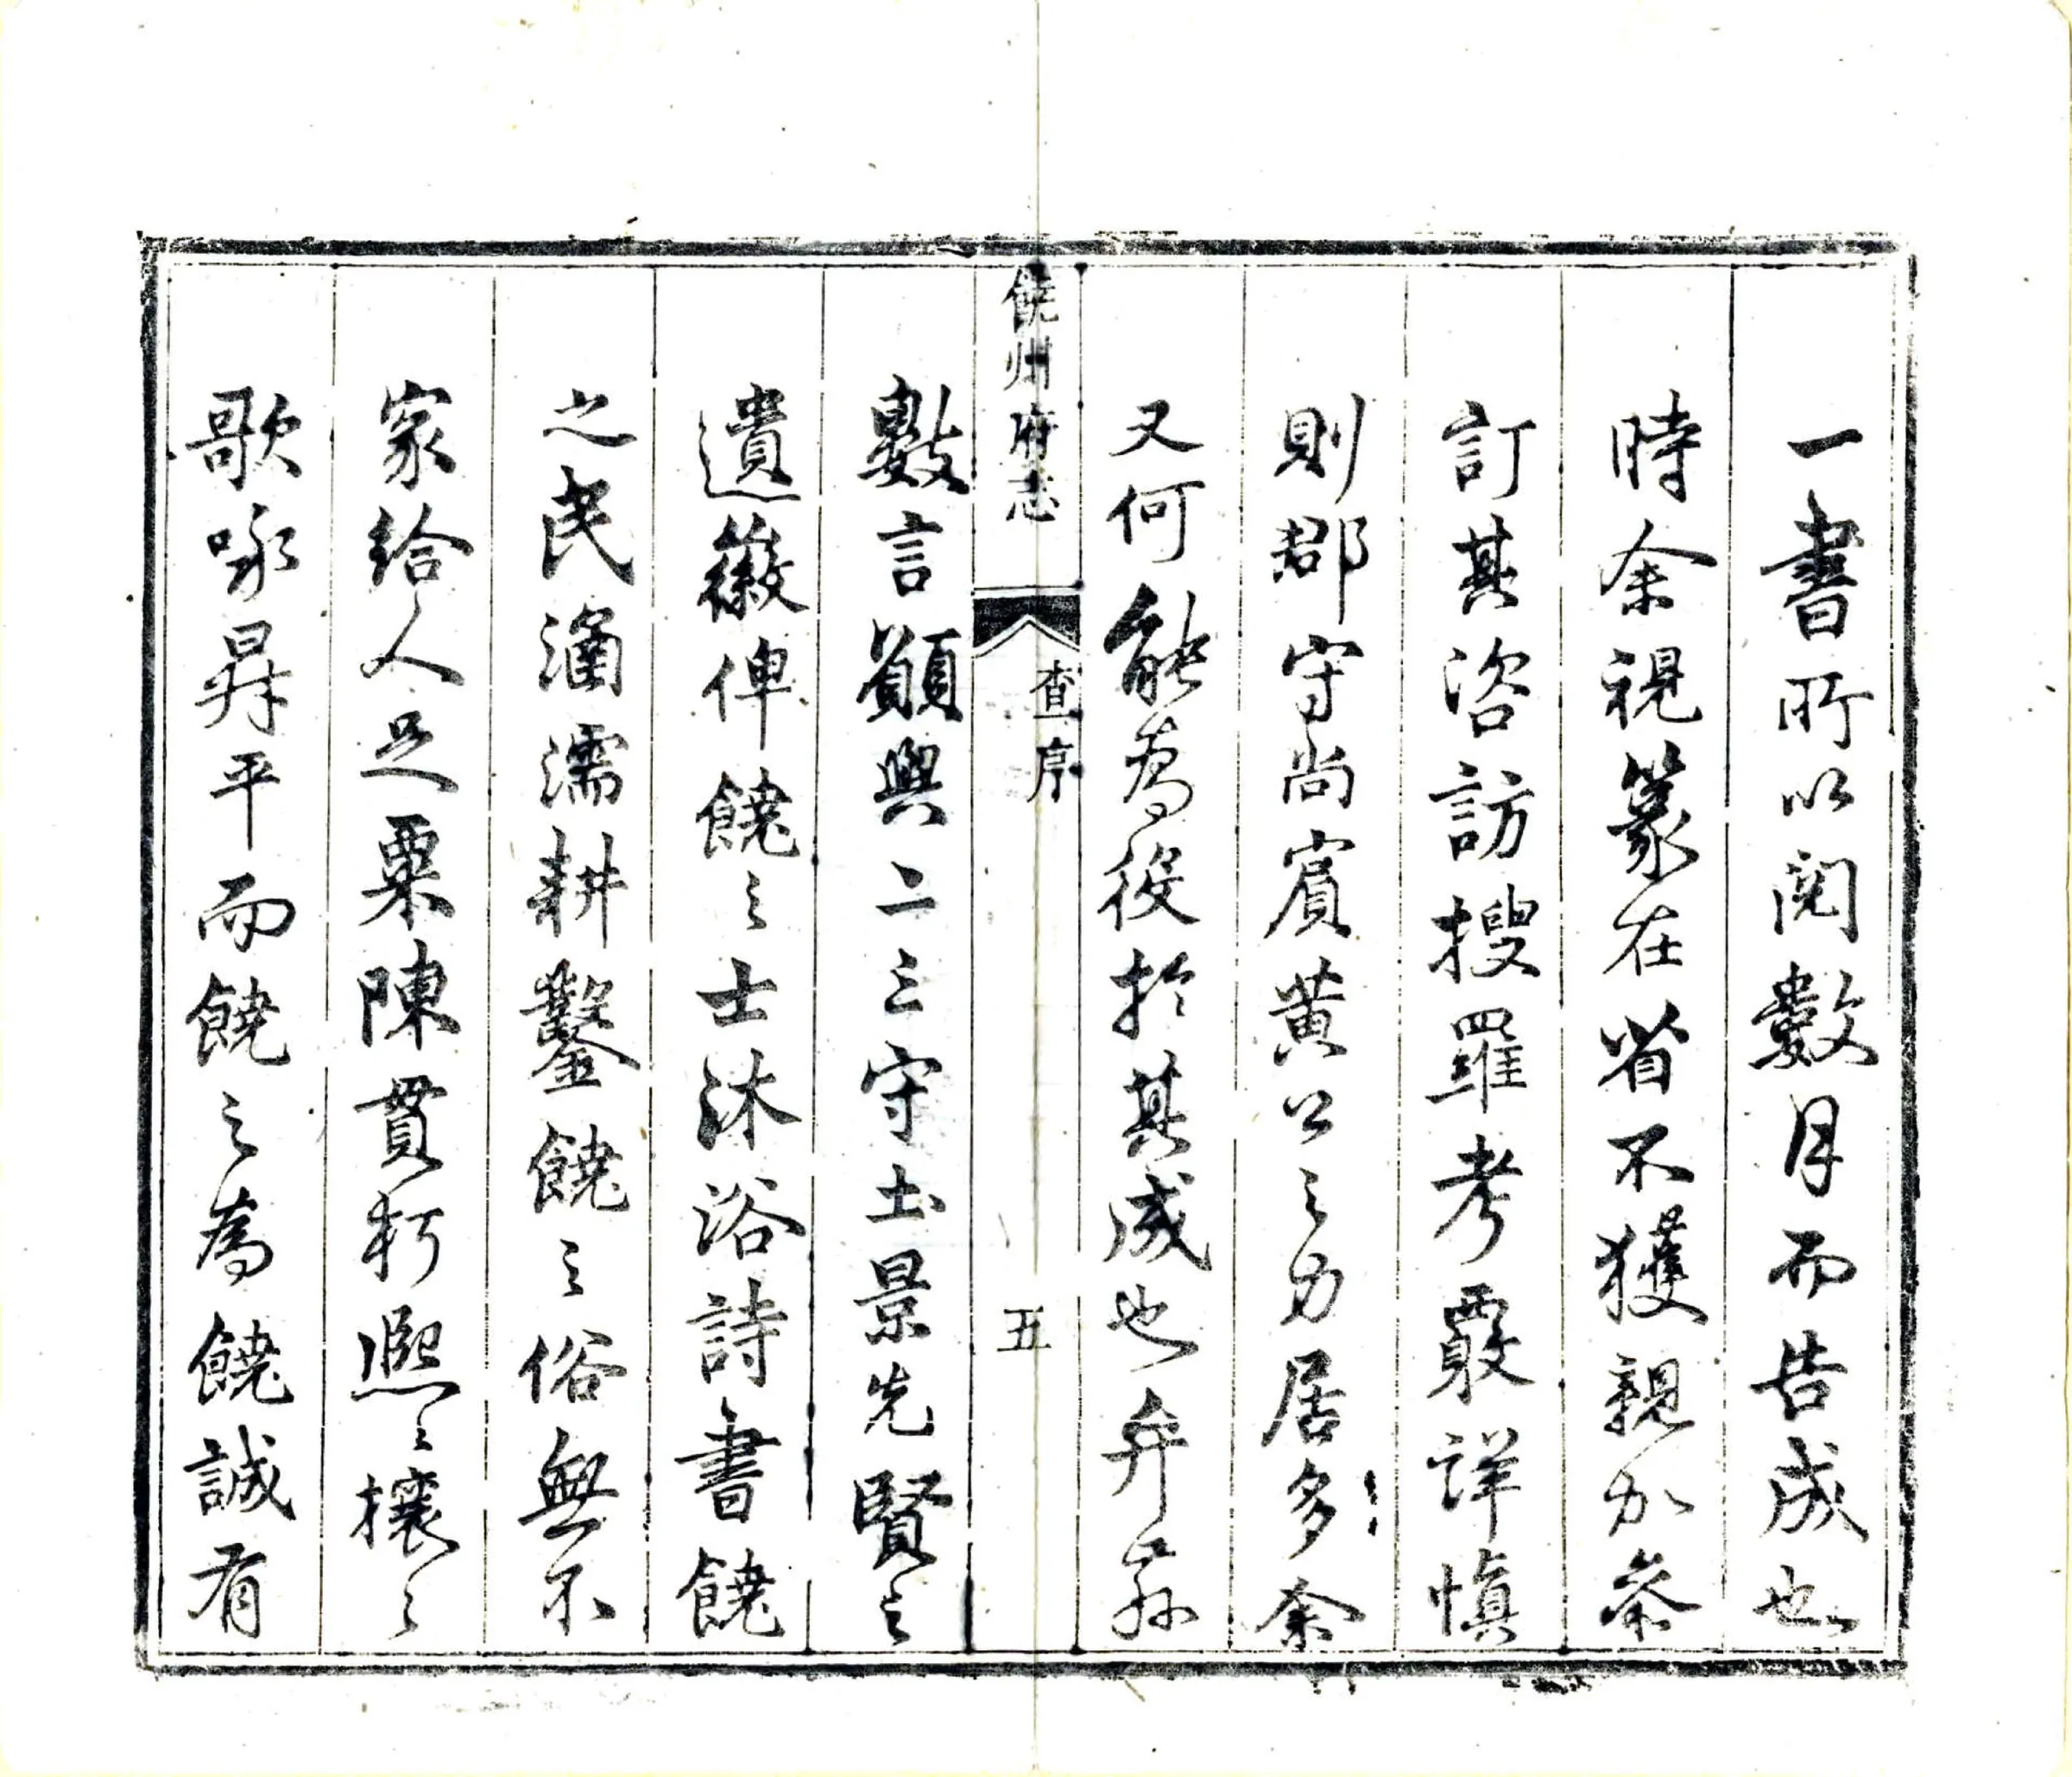 一書所以閱數月而告成也
時余視篆在省不獲親加叅
訂其咨訪搜羅考覈詳慎
則郡守尚賓黄公之力居多余
又何能為役於其成也弁茲
饒州府志
查序
五
數言願與二三守土景先賢之
遺徽俾饒之士沐浴詩書饒
之民涵濡耕鑿饒之俗無不
家給人足粟陳貫朽熙〻攘〻
歌咏昇平而饒之為饒誠有